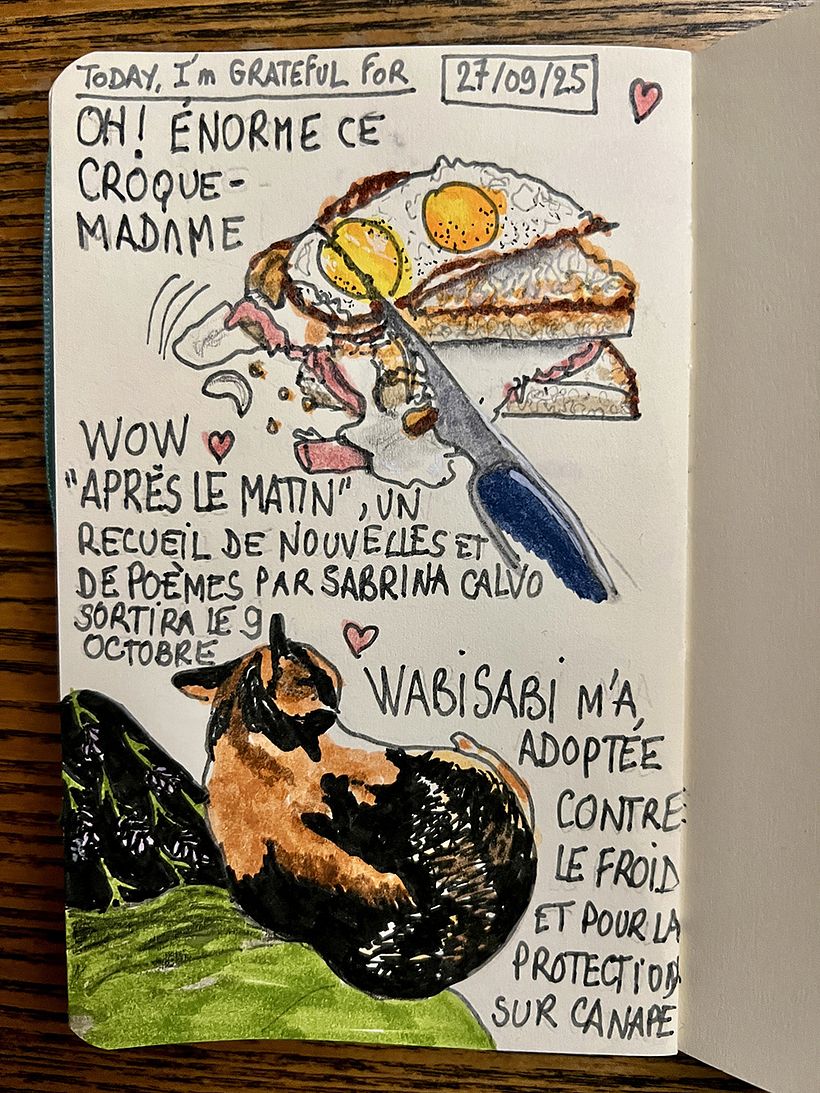 TODAY, I'm GRATEFUL FOR
27/09/25
OH! ÉNORME CE
CROQUE-
MADAME
WOW
"APRÈS LE MATIN", UN
RECUEIL DE NOUVELLES ET
DE POÈMES PAR SABRINA CALVO
SORTIRA LE 9
OCTOBRE
WABISABI M'A
ADOPTÉE
CONTRE
LE FROID
ET POUR LA
PROTECTION
SUR CANAPE